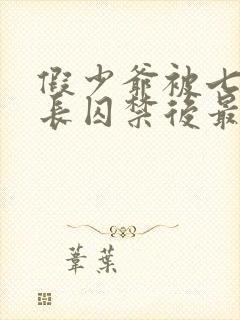 假少爺被七
長囚禁後最
葦葉